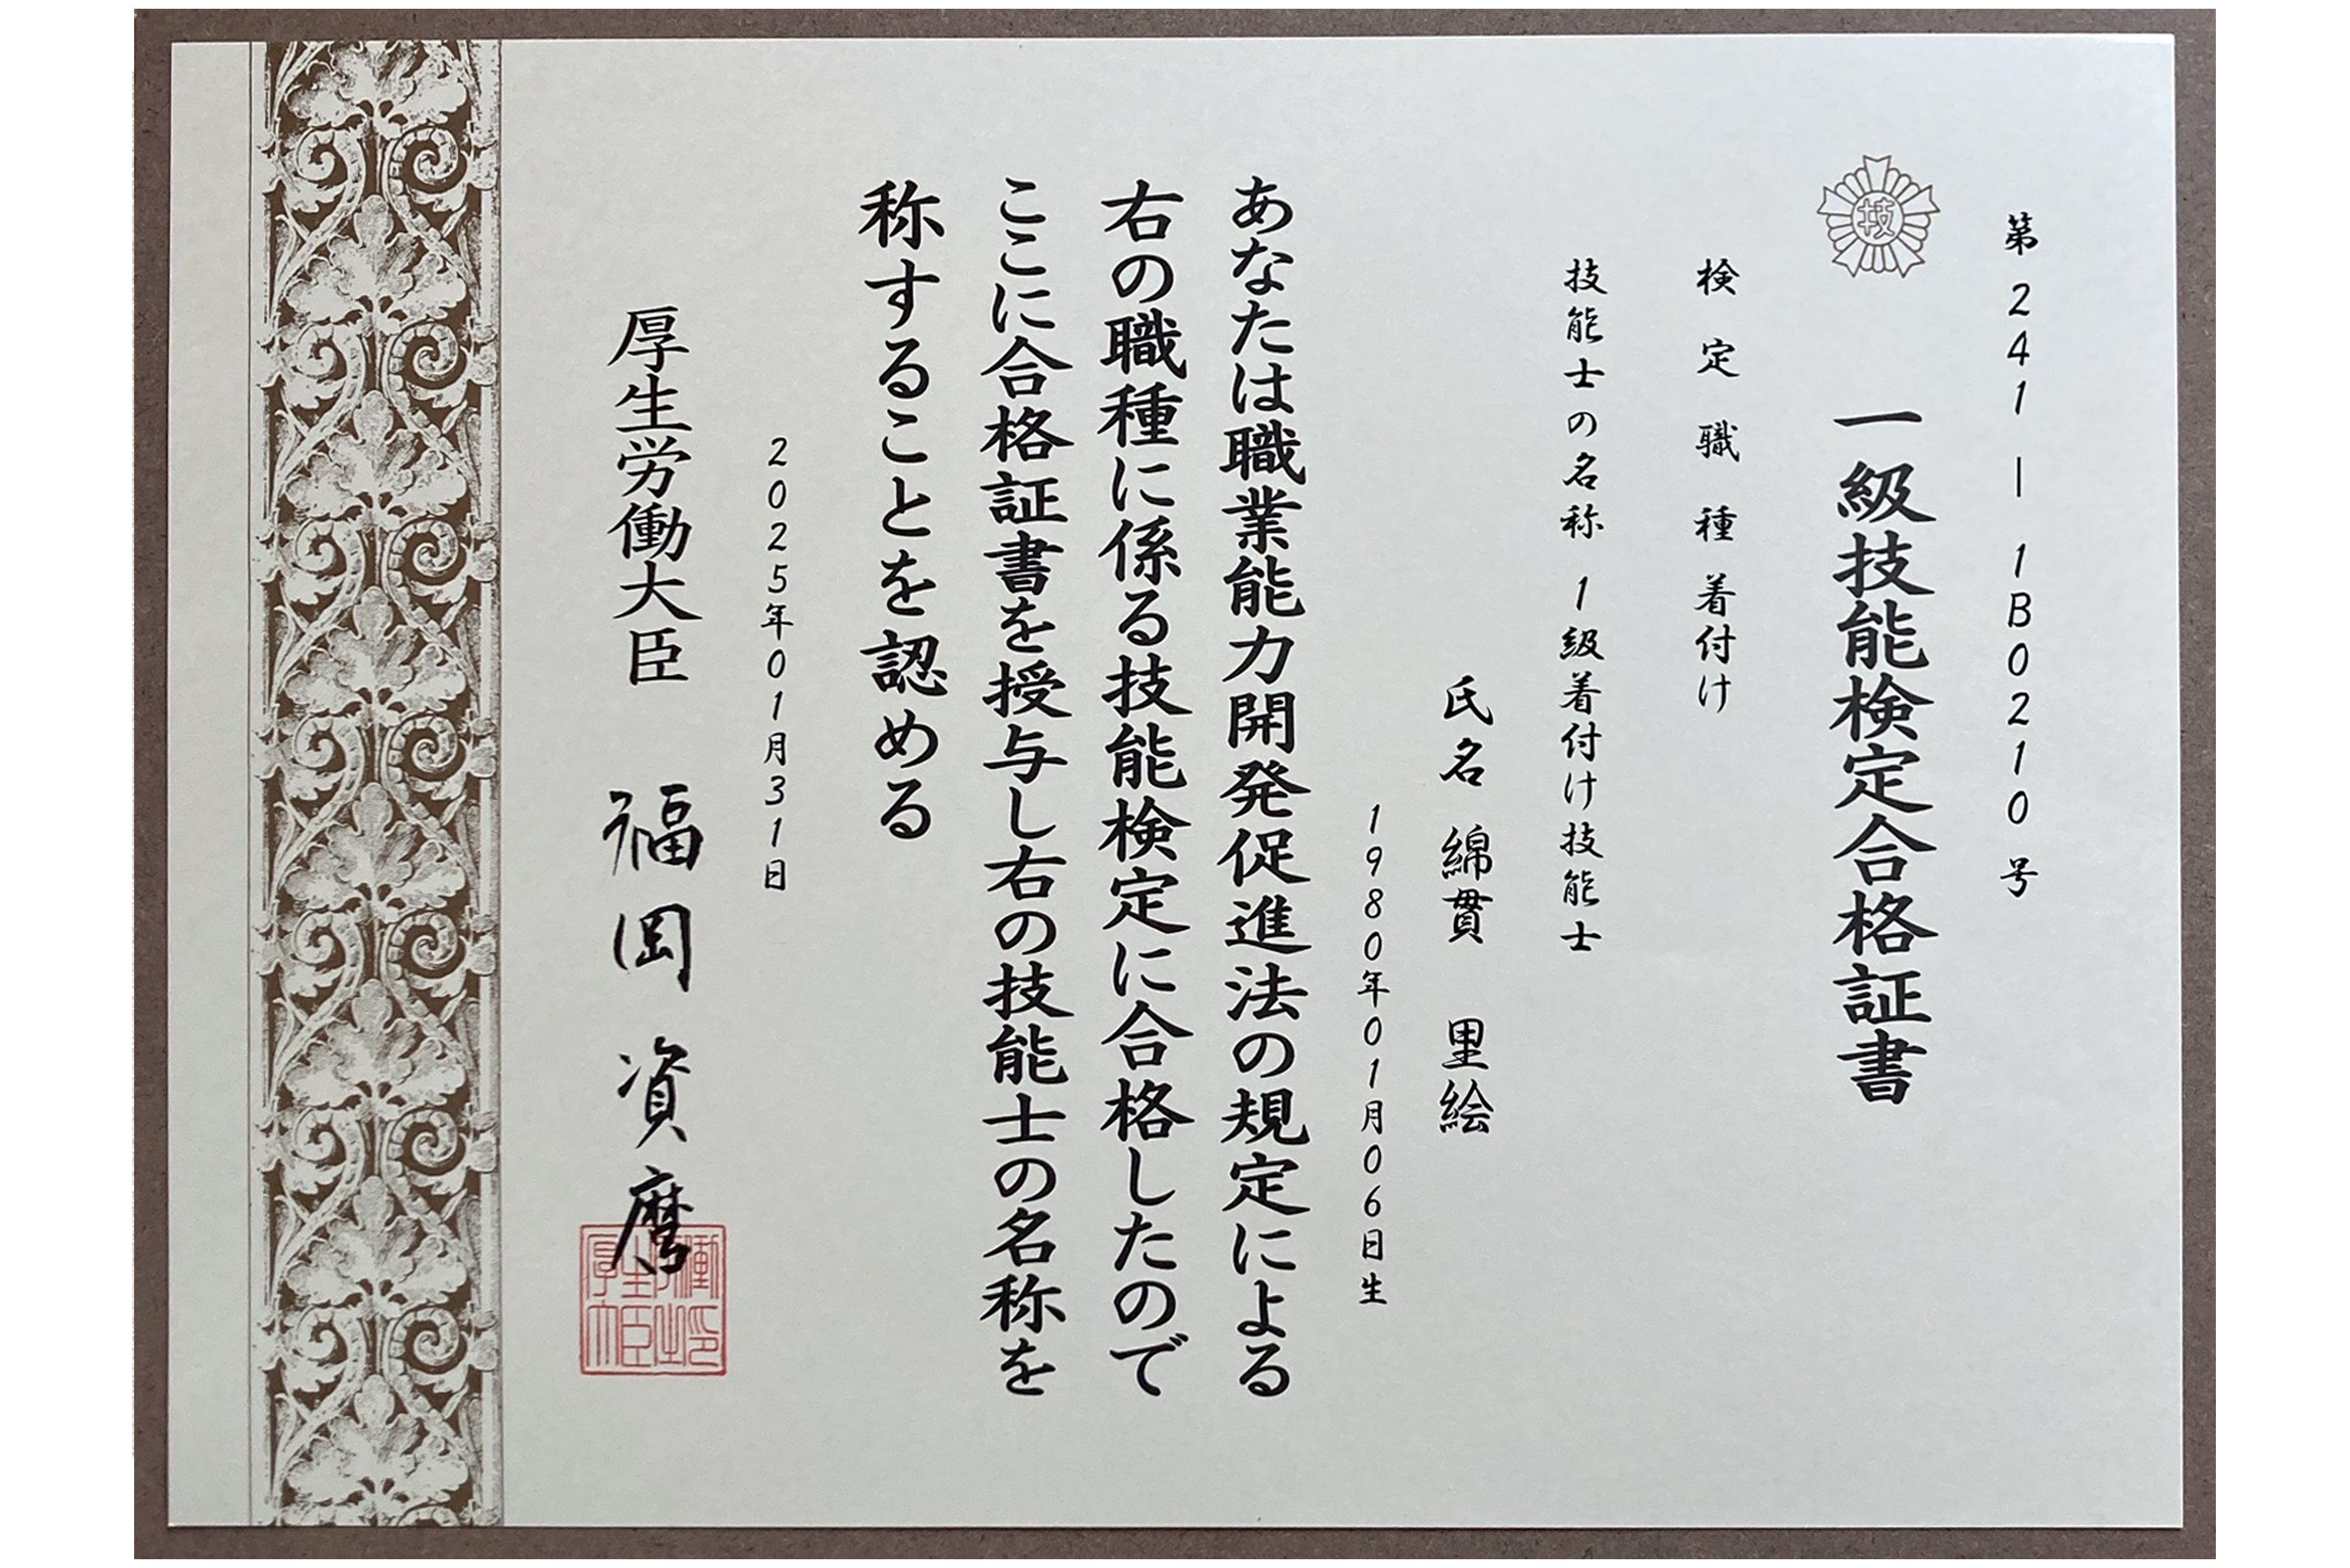 第241ー1B0210号
技
一級技能検定合格証書
検定職種 着付け
技能士の名称 1級着付け技能士
氏名 綿貫 里絵
1980年01月06日生
あなたは職業能力開発促進法の規定による
右の職種に係る技能検定に合格したので
ここに合格証書を授与し右の技能士の名称を
称することを認める
2025年01月31日
厚生労働大臣 福岡資麿